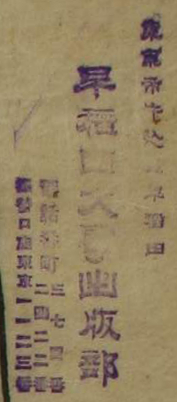 東京市牛込 早稲田
早稲田大学出版部
電話番町 三七四番
二四二二番
振替口座東京一一二三番